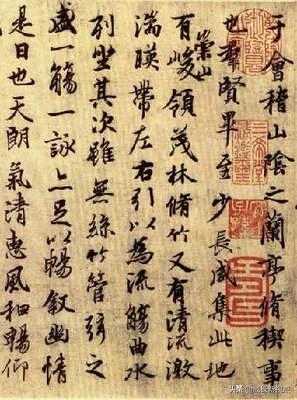 于會稽山陰之蘭亭脩禊事
也羣賢畢至少長咸集此地
崇山
有峻領茂林脩竹又有清流激
湍暎帶左右引以為流觴曲水
列坐其次雖無絲竹管弦之
盛一觴一詠亦足以暢敘幽情
是日也天朗氣清惠風和暢仰